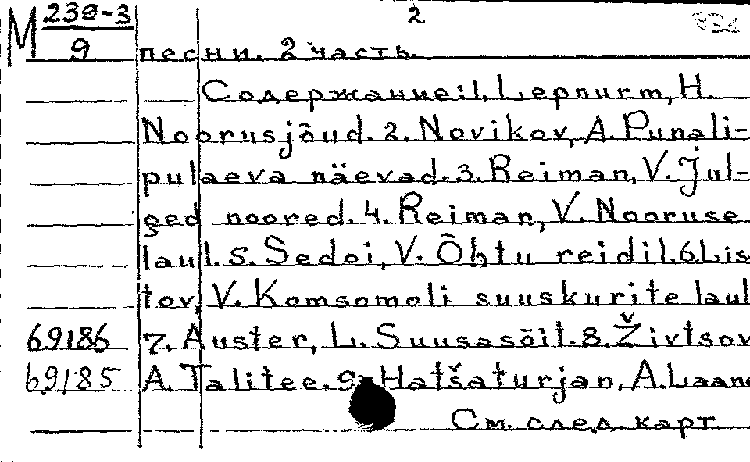 М 239-3 2
9 песни. 2 часть.
Содержание: 1. Lepnurm, H.
Noorusjõud. 2. Novikov, A. Punali-
pulaeva näevad. 3. Reiman, V. Jul-
ged noored. 4. Reiman, V. Nooruse
laul. 5. Sedoi, V. Õhtu reidil. 6. Lis
tov, V. Komsomoli suuskurite laul
69186 7. Auster, L. Suusasõit. 8. Živtsov
69185 A. Talitee. 9. Hatšaturjan, A. Laane
См. след. карт